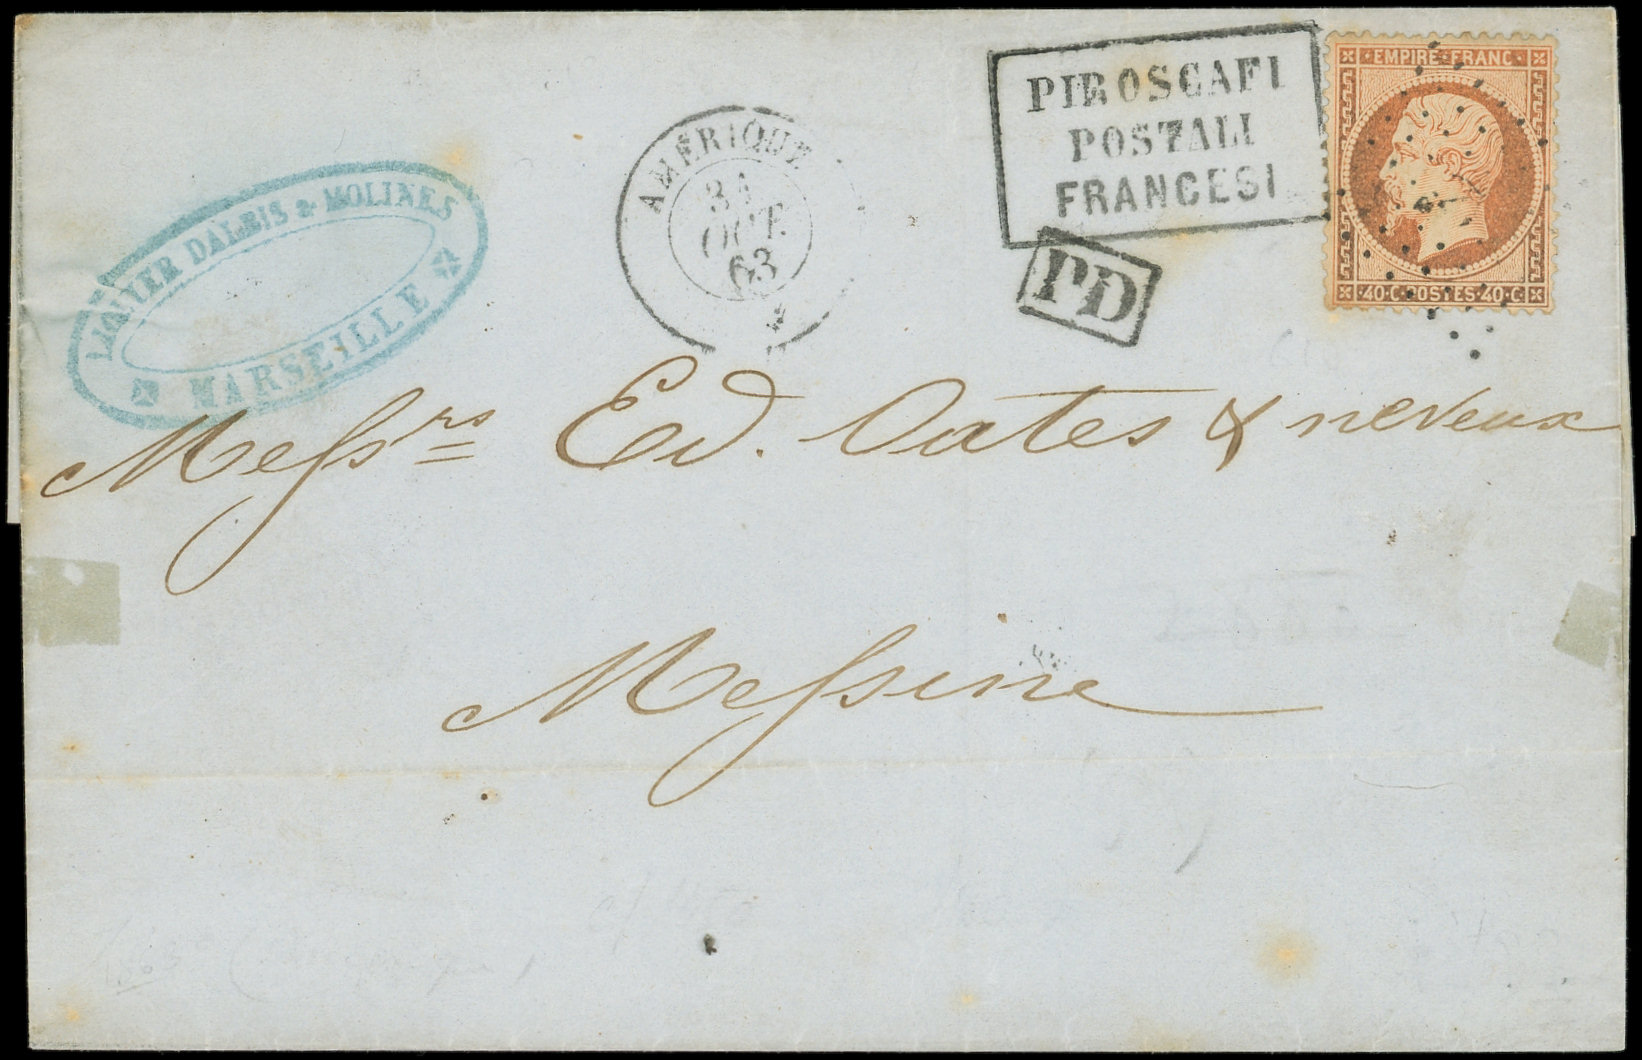 PIROSCAFI
POSTALI
FRANCESI
EMPIRE·FRANC·
40·C·POSTES·40·C
AMÉRIQUE
31
OCT.
63
DALBIS & MOLINES
MARSEILLE
PD
Messrs Ed. Oates & neveux
Messine